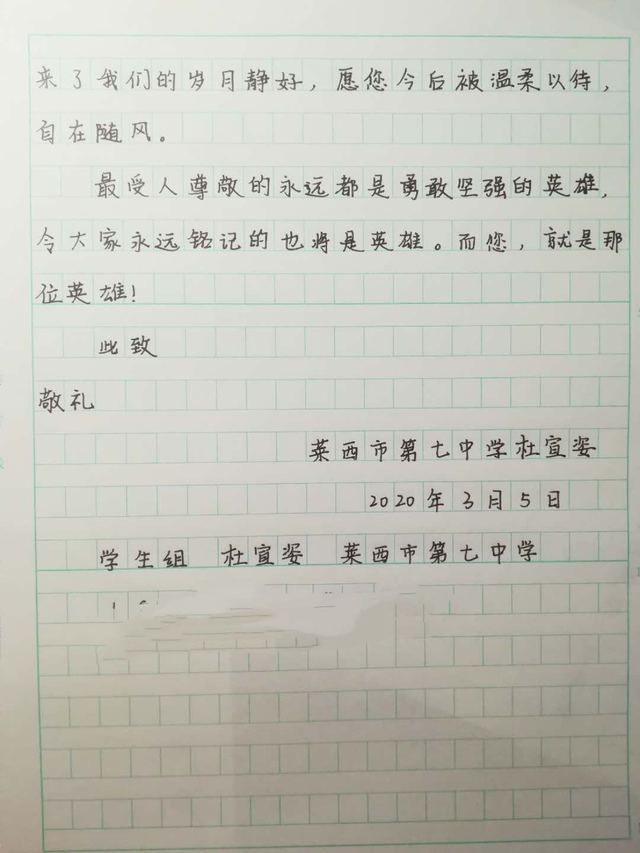 来了我们的岁月静好，愿您今后被温柔以待，
自在随风。
最受人尊敬的永远都是勇敢坚强的英雄，
令大家永远铭记的也将是英雄。而您，就是那
位英雄！
此致
敬礼
莱西市第七中学杜宣姿
2020年3月5日
学生组 杜宣姿 莱西市第七中学